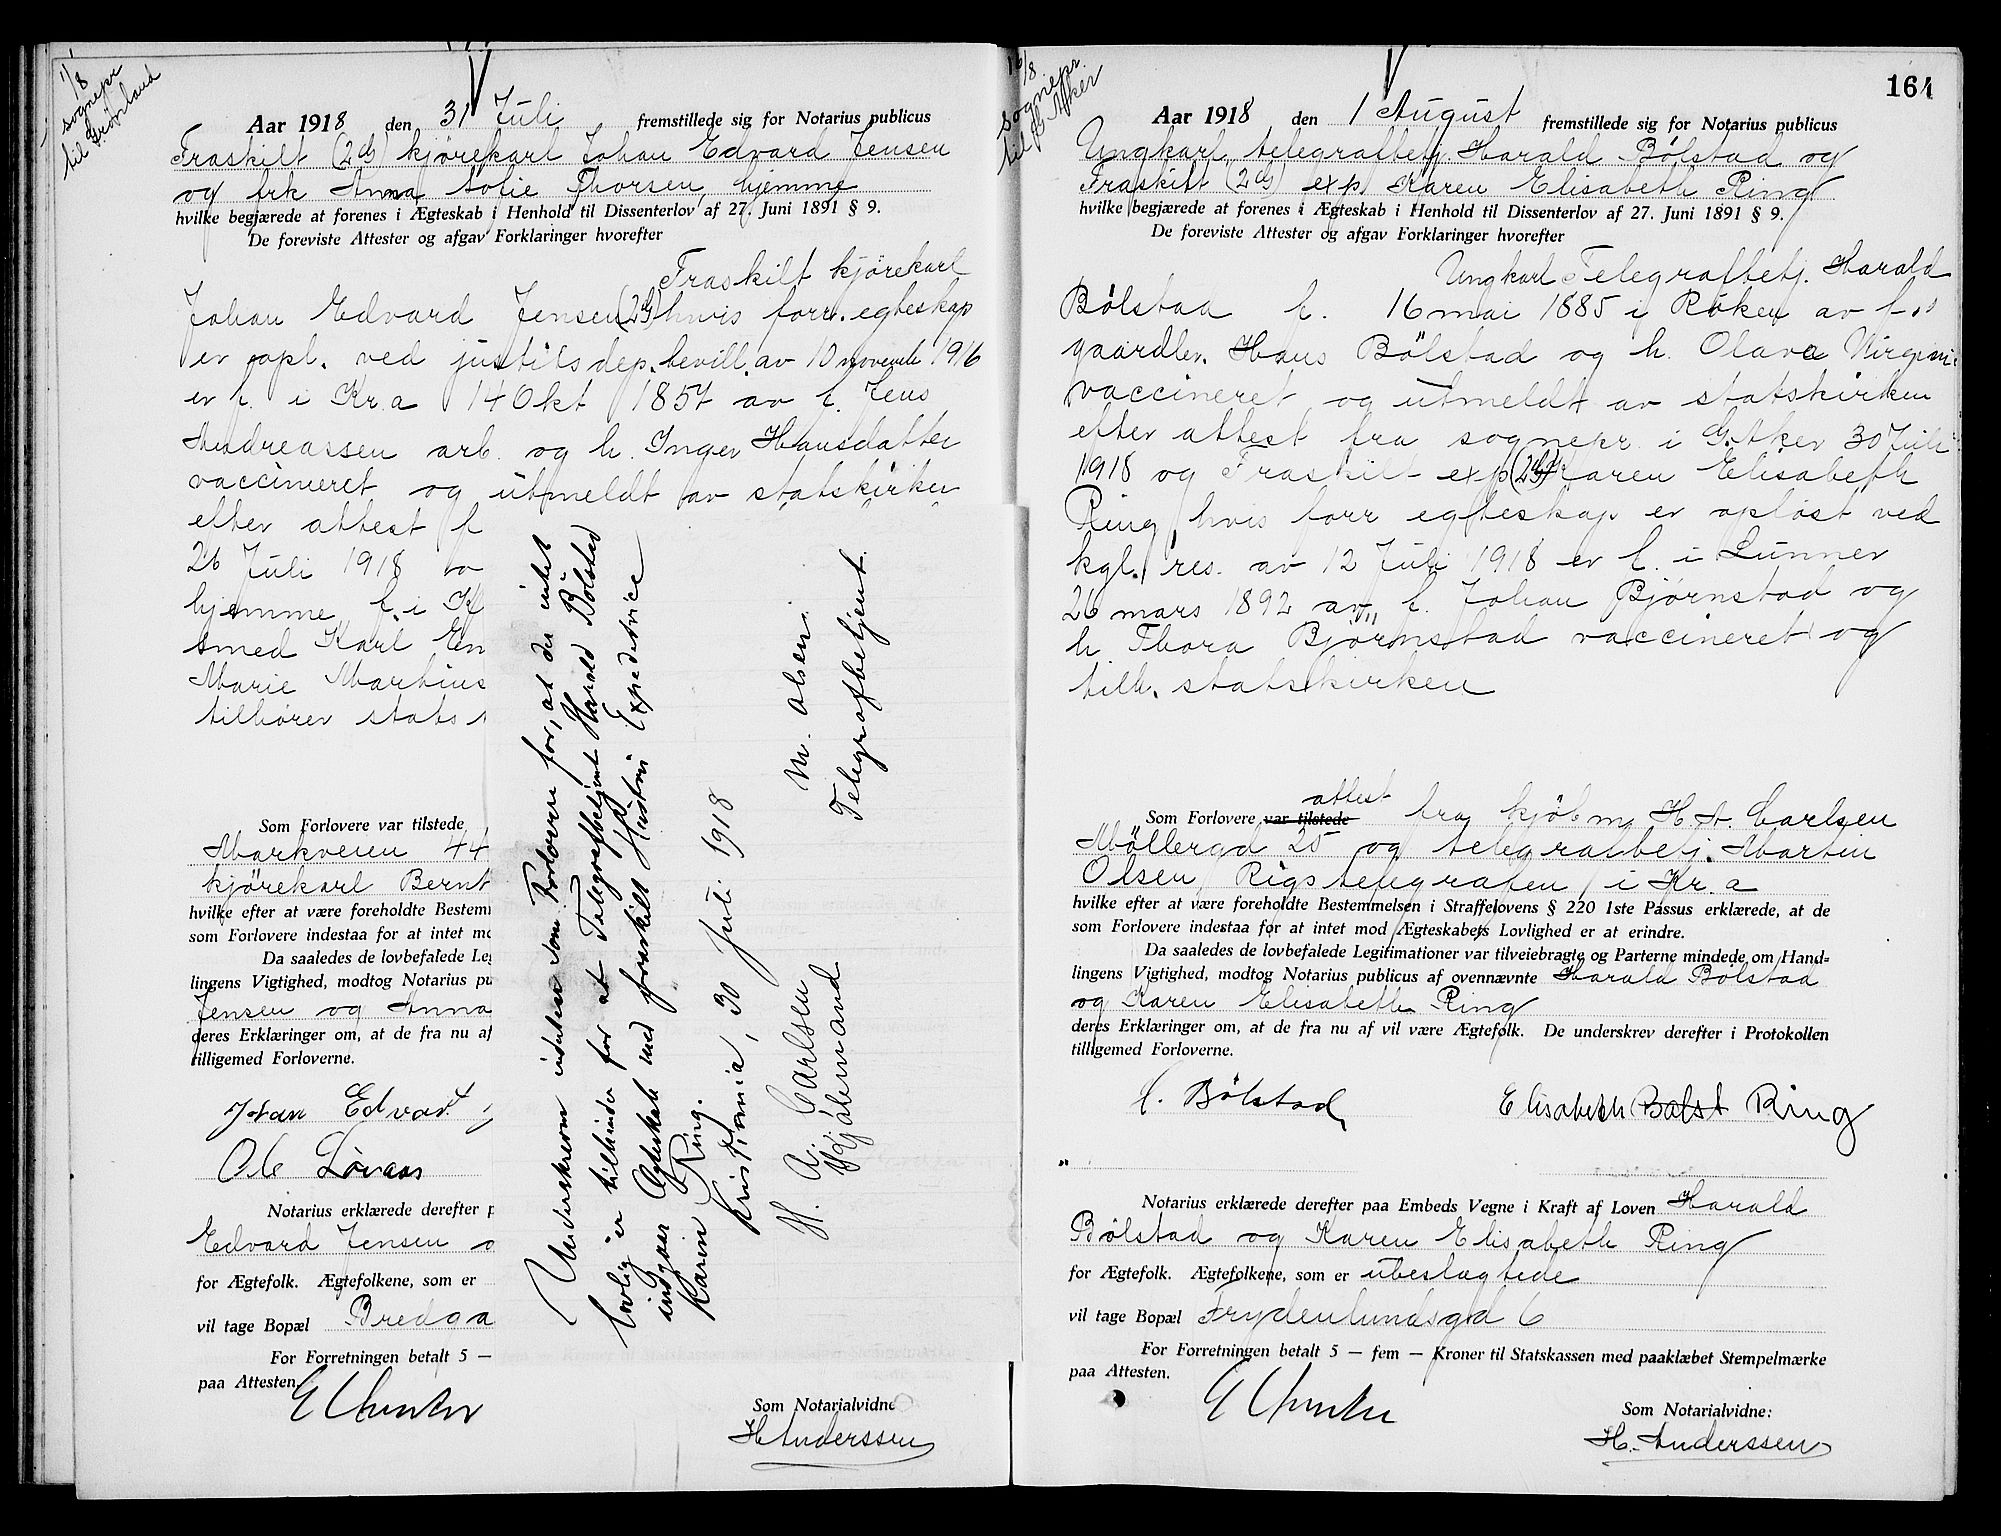 1/8
sognepr
til Grønland
Aar 1918 den 31 Juli fremstillede sig for Notarius publicus
Fraskilt (2dg) kjørekarl Johan Edvard Jensen
og frk Anna Sofie Thorsen, hjemme
hvilke begjærede at forenes i Ægteskab i Henhold til Dissenterlov af 27. Juni 1891 § 9.
De foreviste Attester og afgav Forklaringer hvorefter
Fraskilt kjørekarl
Johan Edvard Jensen (2dg) hvis forr. egteskap
er opl. ved justitsdep. bevill. av 10 novembr 1916
er f. i Kr.a 14 Okt 1857 av f. Jens
Andreassen arb. og h. Inger Hansdatter
vaccineret og utmeldt av statskirken
efter attest f
26 Juli 1918 o
hjemme f. i K
smed Karl Em
Marie Martius
tilhører stats
Som Forlovere var tilstede
Markveien 44
kjørekarl Bernt
hvilke efter at være foreholdte Bestemm
som Forlovere indestaa for at intet mo
Da saaledes de lovbefalede Leg
lingens Vigtighed, modtog Notarius pu
Jensen og Anna
deres Erklæringer om, at de fra nu af
tilligemed Forloverne.
Johan Edvart
Ole Løvaas
Notarius erklærede derefter p
Edvard Jensen o
for Ægtefolk. Ægtefolkene, som er
vil tage Bopæl Bredga
For Forretningen betalt 5 —
paa Attesten.
Som Notarialvidne
H Anderssen
Underskrevne indestaar som Forlovere for, at der intet
lovlig er tilhinder for at Telegrafbetjent Harald Bölstad
indgaar Ægteskab med fraskilt Hustru Expeditrice
Karin Ring.
Kristiania, 30 Juli 1918
H. A. Carlsen
Kjöbmand
M. Olsen.
Telegrafbetjent.
16/8
sognepr.
til G. Aker
164
Aar 1918 den 1 August fremstillede sig for Notarius publicus
Ungkarl telegrafbetj. Harald Bølstad og
Fraskilt (2dg) exp. Karen Elisabeth Ring
hvilke begjærede at forenes i Ægteskab i Henhold til Dissenterlov af 27. Juni 1891 § 9.
De foreviste Attester og afgav Forklaringer hvorefter
Ungkarl Telegrafbetj. Harald
Bølstad f. 16 mai 1885 i Røken av f.
gaardbr. Hans Bölstad og h. Olava Virginie
vaccineret og utmeldt av statskirken
efter attest fra sognepr. i G. Aker 30 Juli
1918 og Fraskilt exp (2dg) Karen Elisabeth
Ring hvis forr egteskap er opløst ved
kgl. res. av 12 Juli 1918 er f. i Lunner
26 mars 1892 av f. Johan Bjørnstad og
h Thora Bjørnstad vaccineret og
tilh. statskirken
Som Forlovere var tilstede attest fra kjøbm H. A. Carlsen
Möllergd 25 og telegrafbetj. Martin
Olsen, Rigstelegrafen i Kr.a
hvilke efter at være foreholdte Bestemmelsen i Straffelovens § 220 1ste Passus erklærede, at de
som Forlovere indestaa for at intet mod Ægteskabets Lovlighed er at erindre.
Da saaledes de lovbefalede Legitimationer var tilveiebragte og Parterne mindede om Hand-
lingens Vigtighed, modtog Notarius publicus af ovennævnte Harald Bölstad
og Karen Elisabeth Ring
deres Erklæringer om, at de fra nu af vil være Ægtefolk. De underskrev derefter i Protokollen
tilligemed Forloverne.
H. Bölstad Elisabeth Bølst Ring
Notarius erklærede derefter paa Embeds Vegne i Kraft af Loven Harald
Bølstad og Karen Elisabeth Ring
for Ægtefolk. Ægtefolkene, som er ubeslægtede
vil tage Bopæl Frydenlundsgd 6
For Forretningen betalt 5 — fem — Kroner til Statskassen med paaklæbet Stempelmærke
paa Attesten.
Som Notarialvidne:
H. Anderssen